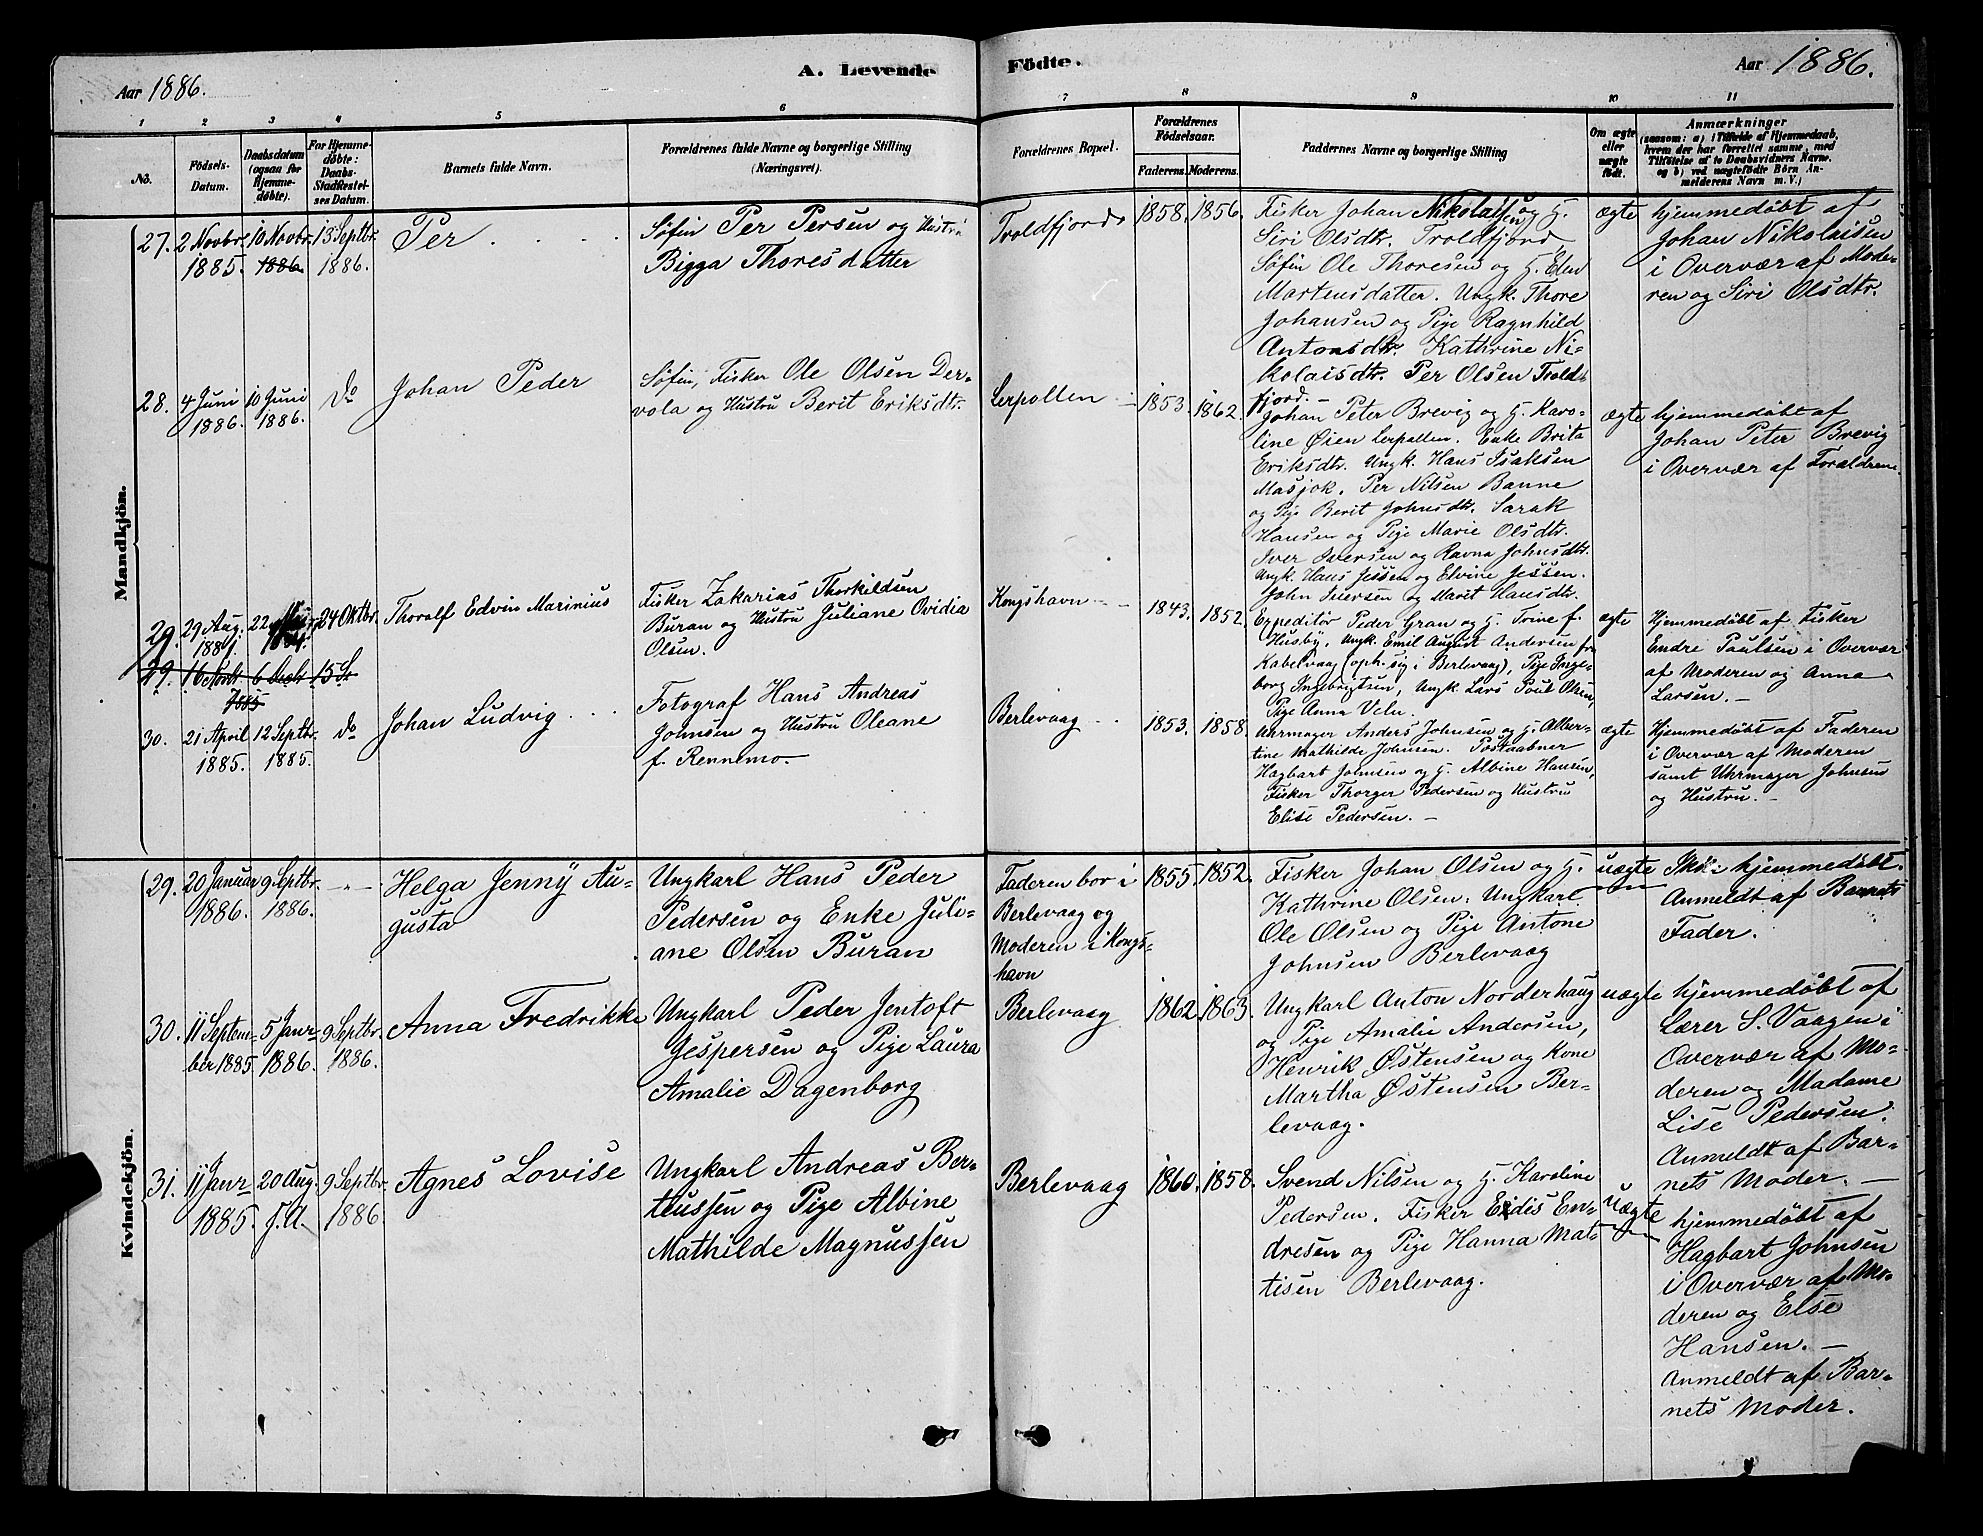 Aar 1886.
A. Levende
Födte.
Aar 1886.
1 2 3 4 5 6
7 8 9 10 11
No.
Födsels-
Datum.
Daabsdatum
(ogsaa for
Hjemme-
döbte).
For Hjemme-
döbte:
Daabs-
Stadfæstel-
ses Datum.
Barnets fulde Navn.
Forældrenes fulde Navne og borgerlige Stilling
(Næringsvei).
Forældrenes Bopæl.
Forældrenes
Födselsaar.
Faderens. Moderens.
Faddernes Navne og borgerlige Stilling
Om ægte
eller
uægte
födt.
Anmærkninger
(saasom: a) i Tilfælde af Hjemmedaab,
hvem der har forrettet samme, med
Tilföielse af to Daabsvidners Navne.
og b) ved uægtefödte Börn An-
melderens Navn m. V.)
Mandkjön.
27. 2 Novbr.
1885.
10 Novbr.
1886.
13 Septbr.
1886.
Per
Søfin Per Persen og Hustru
Bigga Thoresdatter
Troldfjord
1858. 1856.
Fisker Johan Nikolaisen og H.
Siri Olsdtr. Troldfjord
Søfin Ole Thoresen og H. Elen
Martensdatter. Ungk. Thore
Johansen og Pige Ragnhild
Antonsdtr. Kathrine Ni-
kolaisdtr. Per Olsen Trold-
fjord.
ægte
hjemmedøbt af
Johan Nikolaisen
i Overvær af Mode-
ren og Siri Olsdtr.
28. 4 Juni
1886.
10 Juni
1886.
do
Johan Peder
Søfin, Fisker Ole Olsen Der-
vola og Hustru Berit Eriksdtr.
Lerpollen
1853. 1862.
Johan Peter Brevig og H. Karo-
line Øien Lerpollen. Enke Brita
Eriksdtr. Ungk. Hans Isaksen
Masjok. Per Nilsen Banne
og Pige Berit Johnsdtr. Sarak
Hansen og Pige Marie Olsdtr.
Iver Iversen og Ravna Johnsdtr.
Ungk. Hans Jessen og Elvine Jessen.
John Iversen og Marit Hansdtr.
ægte
hjemmedøbt af
Johan Peter Brevig
i Overvær af Forældrene
29. 29 Aug.
1884.
22
24 Oktbr.
Thoralf Edvin Marinius
Fisker Zakarias Thorkildsen
Buran og Hustru Juliane Ovidia
Olsen.
Kongshavn
1843. 1852.
Expeditør Peder Gran og H. Trine f.
Husby, Ungk. Emil August Andersen fra
Kabelvaag (oph. sig i Berlevaag), Pige Inge-
borg Ingebrigtsen, Ungk Lars Poul Olsen,
Pige Anna
ægte
Hjemmedøbt af Fisker
Endre Paulsen i Overvær
af Moderen og Anna
Larsen.
29. 16 6 15
1885
30. 21 April
1885.
12 Septbr.
1885.
do
Johan Ludvig
Fotograf Hans Andreas
Johnsen og Hustru Oleane
f. Rennemo.
Berlevaag
1853. 1858.
Uhrmager Anders Johnsen og H. Alber-
tine Mathilde Johnsen. Postaabner
Hagbart Johnsen og H. Albine Hansen,
Fisker Thorger Pedersen og Hustru
Elise Pedersen.
ægte
Hjemmedøbt af Faderen
i Overvær af Moderen
samt Uhrmager Johnsen
og Hustru.
Kvindekjön.
29. 20 Januar
1886.
9 Septbr.
1886.
Helga Jenny Au-
gusta
Ungkarl Hans Peder
Pedersen og Enke Juli-
ane Olsen Buran
Faderen bor i
Berlevaag og
Moderen i Kongs-
havn
1855. 1852.
Fisker Johan Olsen og H.
Kathrine Olsen. Ungkarl
Ole Olsen og Pige Antone
Johnsen Berlevaag
uægte
Ikke hjemmedøbt.
Anmeldt af Barnets
Fader.
30. 11 Septem-
ber 1885
5 Janr
1886.
9 Septbr.
1886.
Anna Fredrikke
Ungkarl Peder Jentoft
Jespersen og Pige Laura
Amalie Dagenborg
Berlevaag
1862. 1863.
Ungkarl Anton Norderhaug
og Pige Amalie Andersen,
Henrik Østensen og Kone
Martha Østensen Ber-
levaag.
uægte
hjemmedøbt af
Lærer S. Vaagen i
Overvær af Mo-
deren og Madame
Lise Pedersen.
Anmeldt af Bar-
nets Moder.
31. 11 Janr
1885.
20 Aug.
s. A.
9 Septbr
1886.
Agnes Lovise
Ungkarl Andreas Ber-
teussen og Pige Albine
Mathilde Magnussen
Berlevaag
1860. 1858.
Svend Nilsen og H. Karoline
Pedersen. Fisker Eidis En-
dresen og Pige Hanna Mat-
tisen Berlevaag.
Uægte
hjemmedøbt af
Hagbart Johnsen
i Overvær af Mo-
deren og Else
Hansen.
Anmeldt af Bar-
nets Moder.